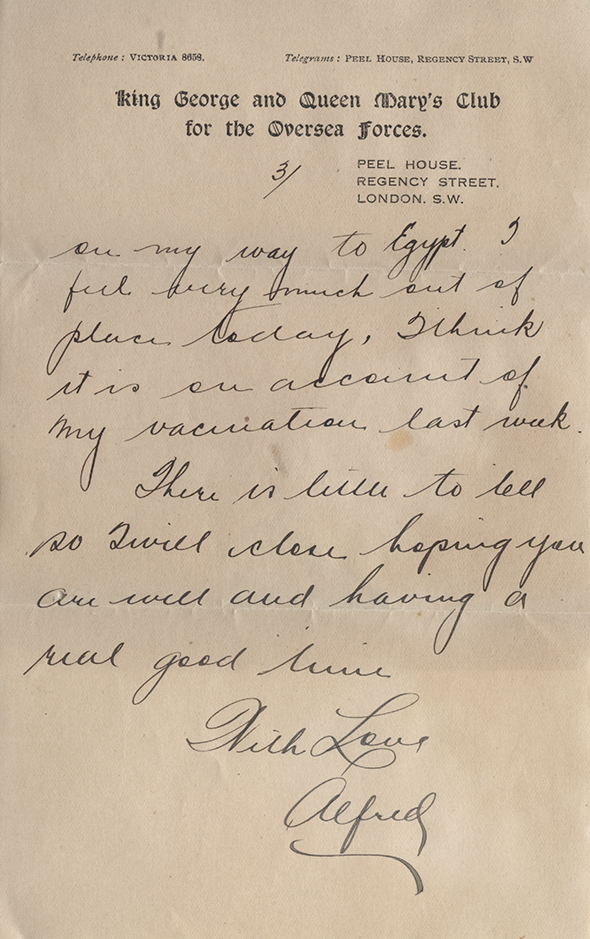 Telephone: VICTORIA 8658. Telegrams: PEEL HOUSE, REGENCY STREET, S.W
King George and Queen Mary's Club
for the Oversea Forces.
3/
PEEL HOUSE.
REGENCY STREET.
LONDON. S.W.
on my way to Egypt. I
feel very much out of
place today, I think
it is on account of
my vacination last week.
There is little to tell
so I will close hoping you
are well and having a
real good time
With Love
Alfred